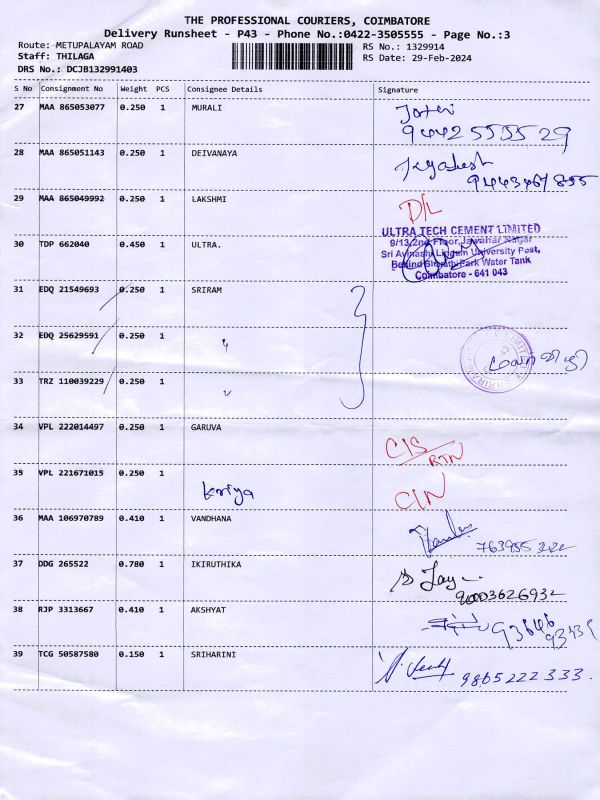 THE PROFESSIONAL COURIERS, COIMBATORE
Delivery Runsheet - P43 - Phone No.:0422-3505555 - Page No.:3
Route: METUPALAYAM ROAD RS No.: 1329914
Staff: THILAGA RS Date: 29-Feb-2024
DRS No.: DCJB132991403
S No Consignment No Weight PCS Consignee Details Signature
27 MAA 865053077 0.250 1 MURALI
94425 55529
28 MAA 865051143 0.250 1 DEIVANAYA
29 MAA 865049992 0.250 1 LAKSHMI D/L
30 TDP 662040 0.450 1 ULTRA.
ULTRA TECH CEMENT LIMITED
9/13, 2nd Floor, Jawahar Nagar
Sri Avinashi Lingam University Post,
Behind Bharathi Park Water Tank
Coimbatore - 641 043
31 EDQ 21549693 0.250 1 SRIRAM
32 EDQ 25629591 0.250 1 "
33 TRZ 110039229 0.250 1 "
34 VPL 222014497 0.250 1 GARUVA C/S
RTN
35 VPL 221671015 0.250 1 C/N
36 MAA 106970789 0.410 1 VANDHANA
37 DDG 265522 0.780 1 IKIRUTHIKA
38 RJP 3313667 0.410 1 AKSHYAT
39 TCG 50587580 0.150 1 SRIHARINI
9865222333